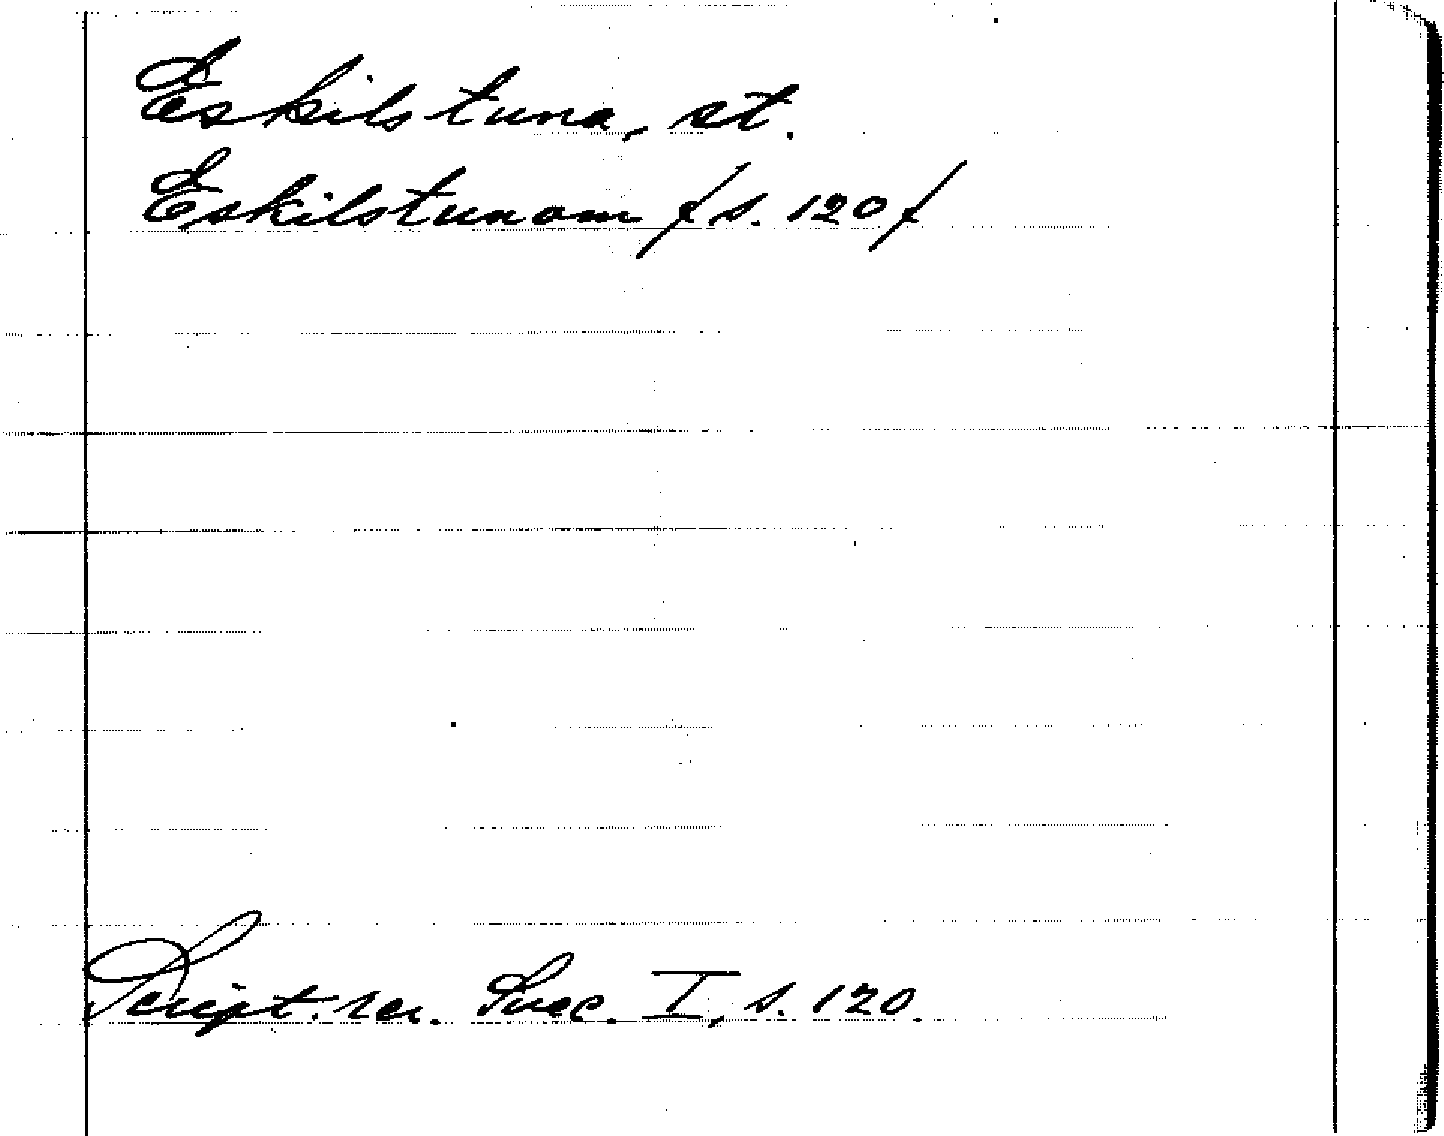 Eskilstuna, st.
Eskilstunam /s. 120/
Script. rer. Svec. I, s. 120.